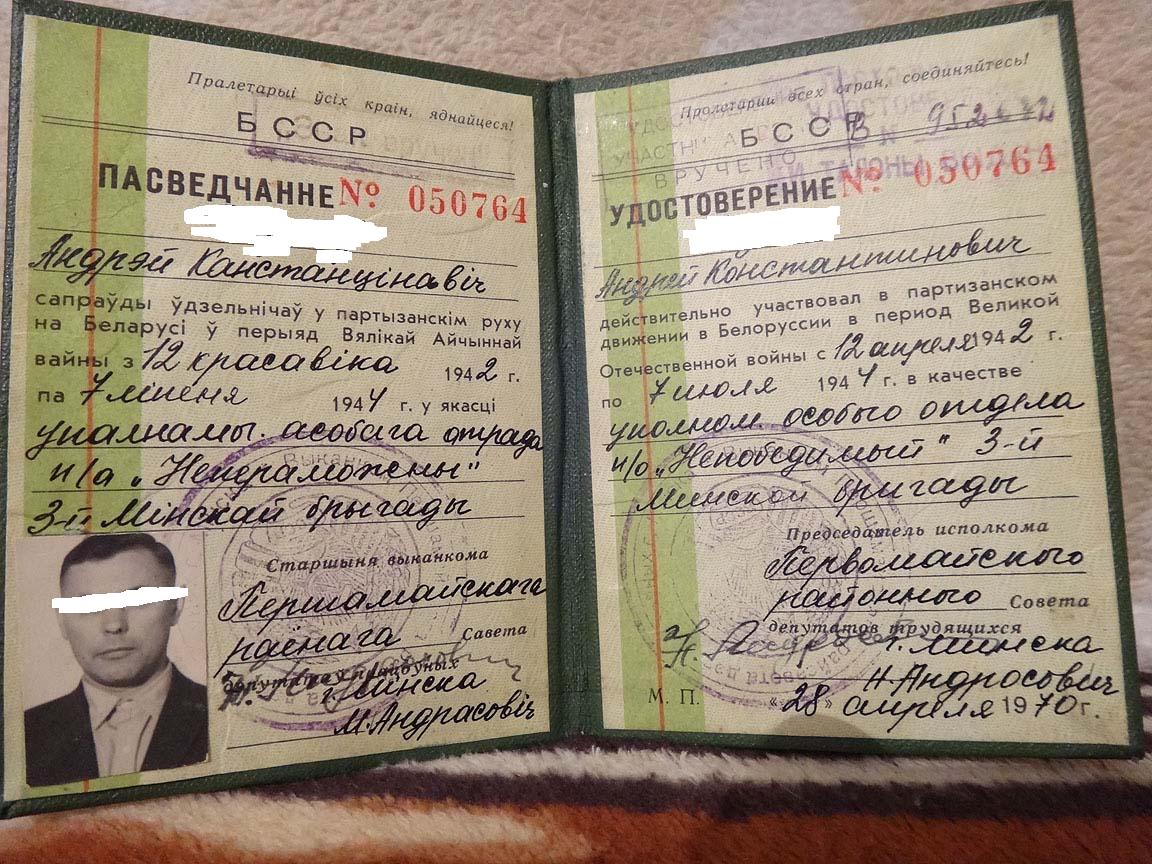 Пралетарыі ўсіх краін, яднайцеся!
БССР
ПАСВЕДЧАННЕ № 050764
Андрэй Канстанцінавіч
сапраўды ўдзельнічаў у партызанскім руху
на Беларусі ў перыяд Вялікай Айчыннай
вайны з 12 красавіка 1942 г.
па 7 ліпеня 1944 г. у якасці
упалнамы. асобага атрада
п/а „Непераможны"
3-й Мінскай брыгады
Старшыня выканкома
Першамайскага
раённага Савета
дэпутатаў працоўных
г. Мінска
М. Андрасовіч
Пролетарии всех стран, соединяйтесь!
БССР
УДОСТОВЕРЕНИЕ № 050764
Андрей Константинович
действительно участвовал в партизанском
движении в Белоруссии в период Великой
Отечественной войны с 12 апреля 1942 г.
по 7 июля 1944 г. в качестве
уполном. особого отдела
п/о „Непобедимый" 3-й
Минской бригады
Председатель исполкома
Первомайского
районного Совета
депутатов трудящихся
г. Минска
Н. Андросович
М. П. «28» апреля 1970 г.